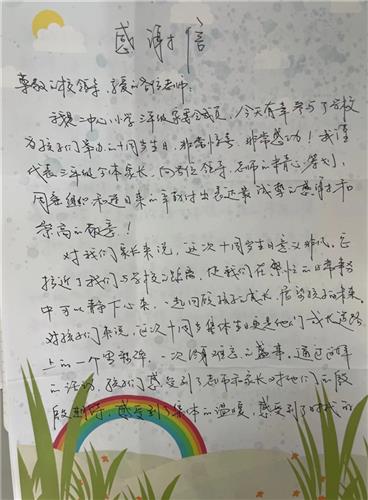 感谢信
尊敬的校领导、亲爱的各位老师：
我是二中心小学三年级家委会成员，今天有幸参与了学校
为孩子们举办的十周岁生日，非常惊喜，非常感动！我谨
代表三年级全体家长，向各位领导、老师的精心策划、
周密组织和连日来的辛勤付出表达最诚挚的感谢和
崇高的敬意！
对我们家长来说，这次十周岁生日意义非凡，它
拉近了我们与学校的距离，使我们在繁忙的日常事务
中可以静下心来，一起回顾孩子成长，展望孩子的未来。
对孩子们来说，这次十周岁集体生日更是他们成长道路
上的一个里程碑，一次终身难忘的盛事，通过这样
的活动，孩子们感受到了老师和家长对他们的殷
殷期盼，感受到了集体的温暖，感受到了时代的